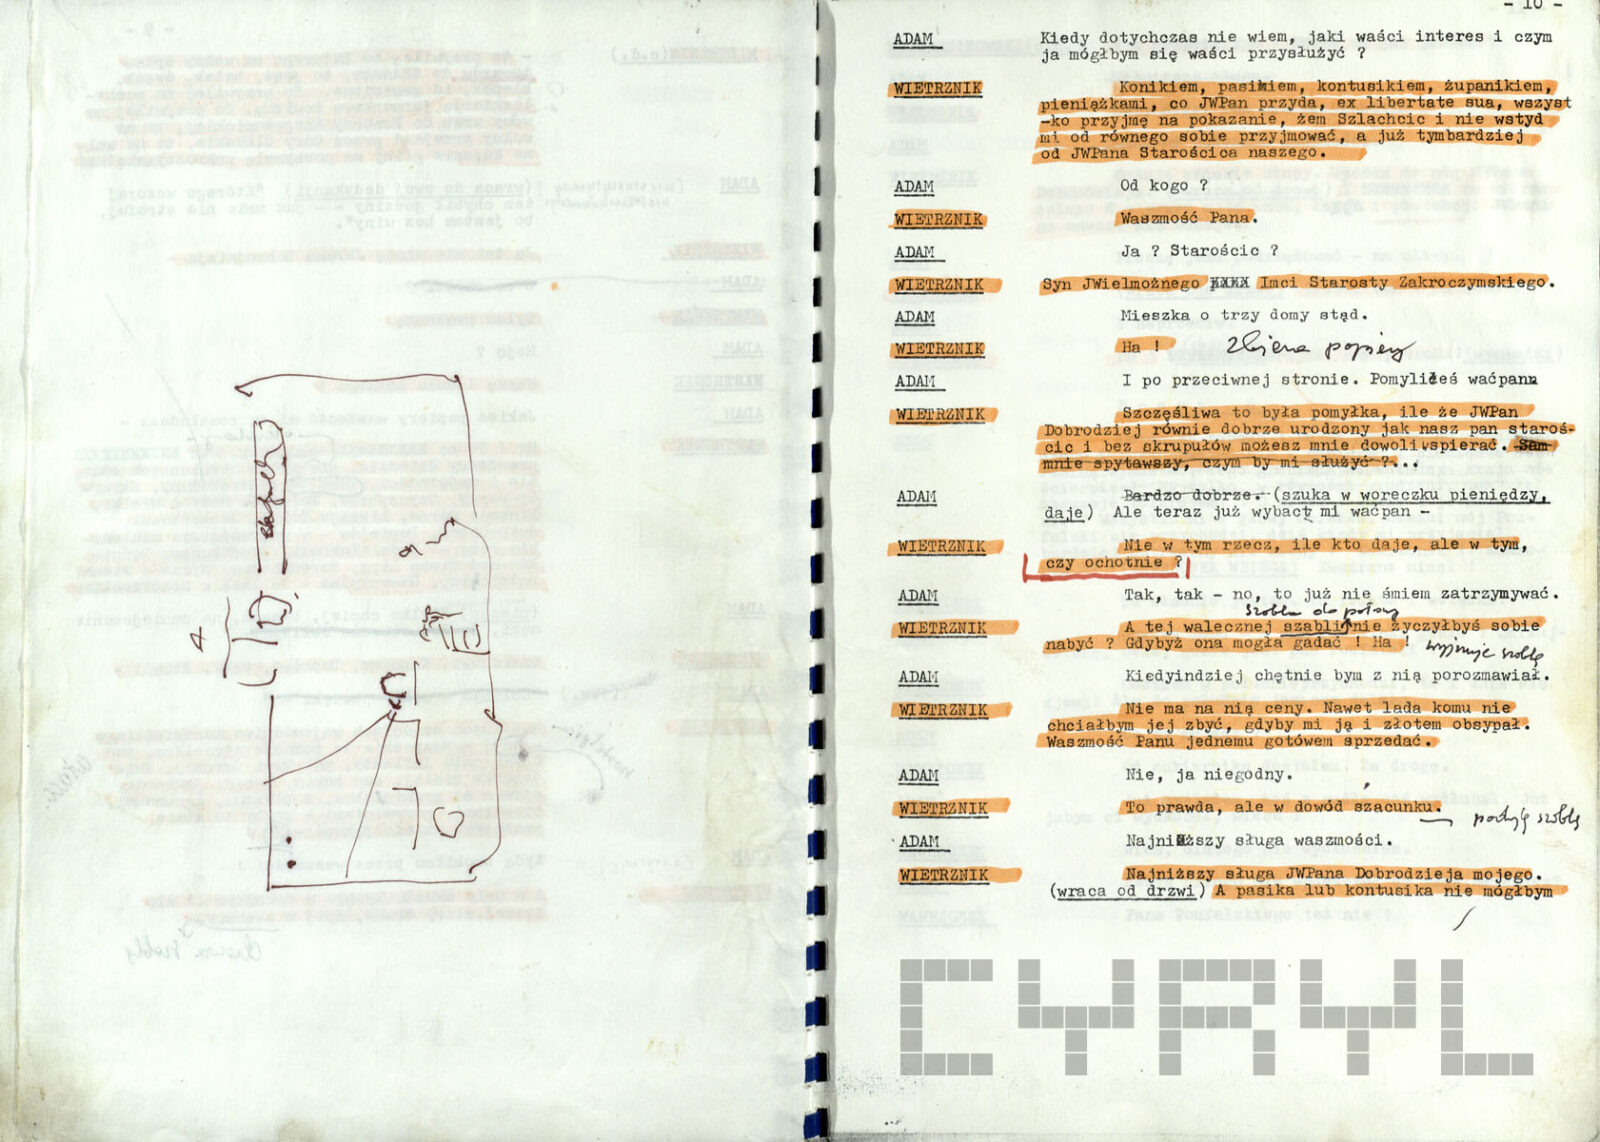 - 10 -
ADAM Kiedy dotychczas nie wiem, jaki waści interes i czym
ja mógłbym się waści przysłużyć ?
WIETRZNIK Konikiem, pasikiem, kontusikiem, żupanikiem,
pieniążkami, co JWPan przyda, ex libertate sua, wszyst
-ko przyjmę na pokazanie, żem Szlachcic i nie wstyd
mi od równego sobie przyjmować, a już tymbardziej
od JWPana Starościca naszego.
ADAM Od kogo ?
WIETRZNIK Waszmość Pana.
ADAM Ja ? Starościc ?
WIETRZNIK Syn JWielmożnego XXXX Imci Starosty Zakroczymskiego.
ADAM Mieszka o trzy domy stąd.
WIETRZNIK Ha ! zbiera papiery
ADAM I po przeciwnej stronie. Pomyliłeś waćpan
WIETRZNIK Szczęśliwa to była pomyłka, ile że JWPan
Dobrodziej równie dobrze urodzony jak nasz pan staroś-
cic i bez skrupułów możesz mnie dowoli wspierać. Sam
mnie spytawszy, czym by mi służyć ?...
ADAM Bardzo dobrze. (szuka w woreczku pieniędzy,
daje) Ale teraz już wybacz mi waćpan -
WIETRZNIK Nie w tym rzecz, ile kto daje, ale w tym,
czy ochotnie ?
ADAM Tak, tak - no, to już nie śmiem zatrzymywać.
szabla do połowy
WIETRZNIK A tej walecznej szabli nie życzyłbyś sobie
nabyć ? Gdybyż ona mogła gadać ! Ha ! wyjmuje szablę
ADAM Kiedyindziej chętnie bym z nią porozmawiał.
WIETRZNIK Nie ma na nią ceny. Nawet lada komu nie
chciałbym jej zbyć, gdyby mi ją i złotem obsypał.
Waszmość Panu jednemu gotówem sprzedać.
ADAM Nie, ja niegodny.
WIETRZNIK To prawda, ale w dowód szacunku.
podaje szablę
ADAM Najniższy sługa waszmości.
WIETRZNIK Najniższy sługa JWPana Dobrodzieja mojego.
(wraca od drzwi) A pasika lub kontusika nie mógłbym
CYRYL